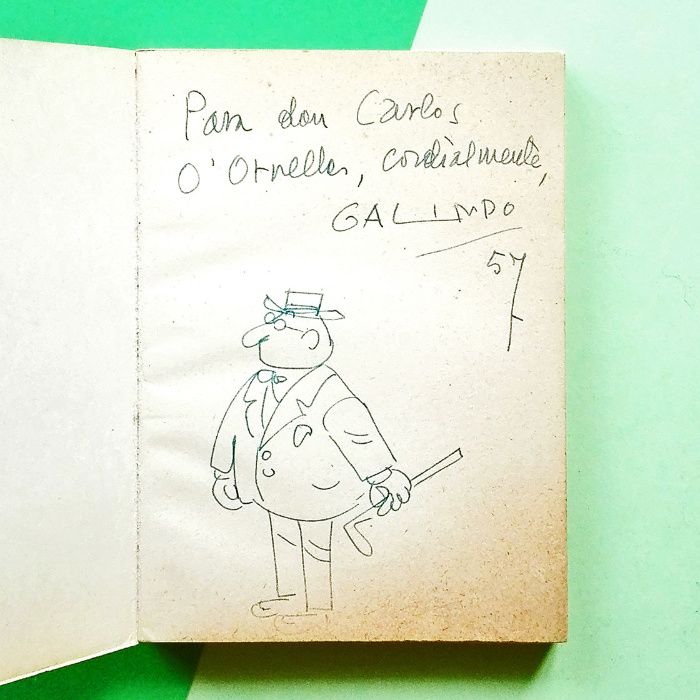 Para don Carlos
O'Ornellas, cordialmente,
GALINDO
57